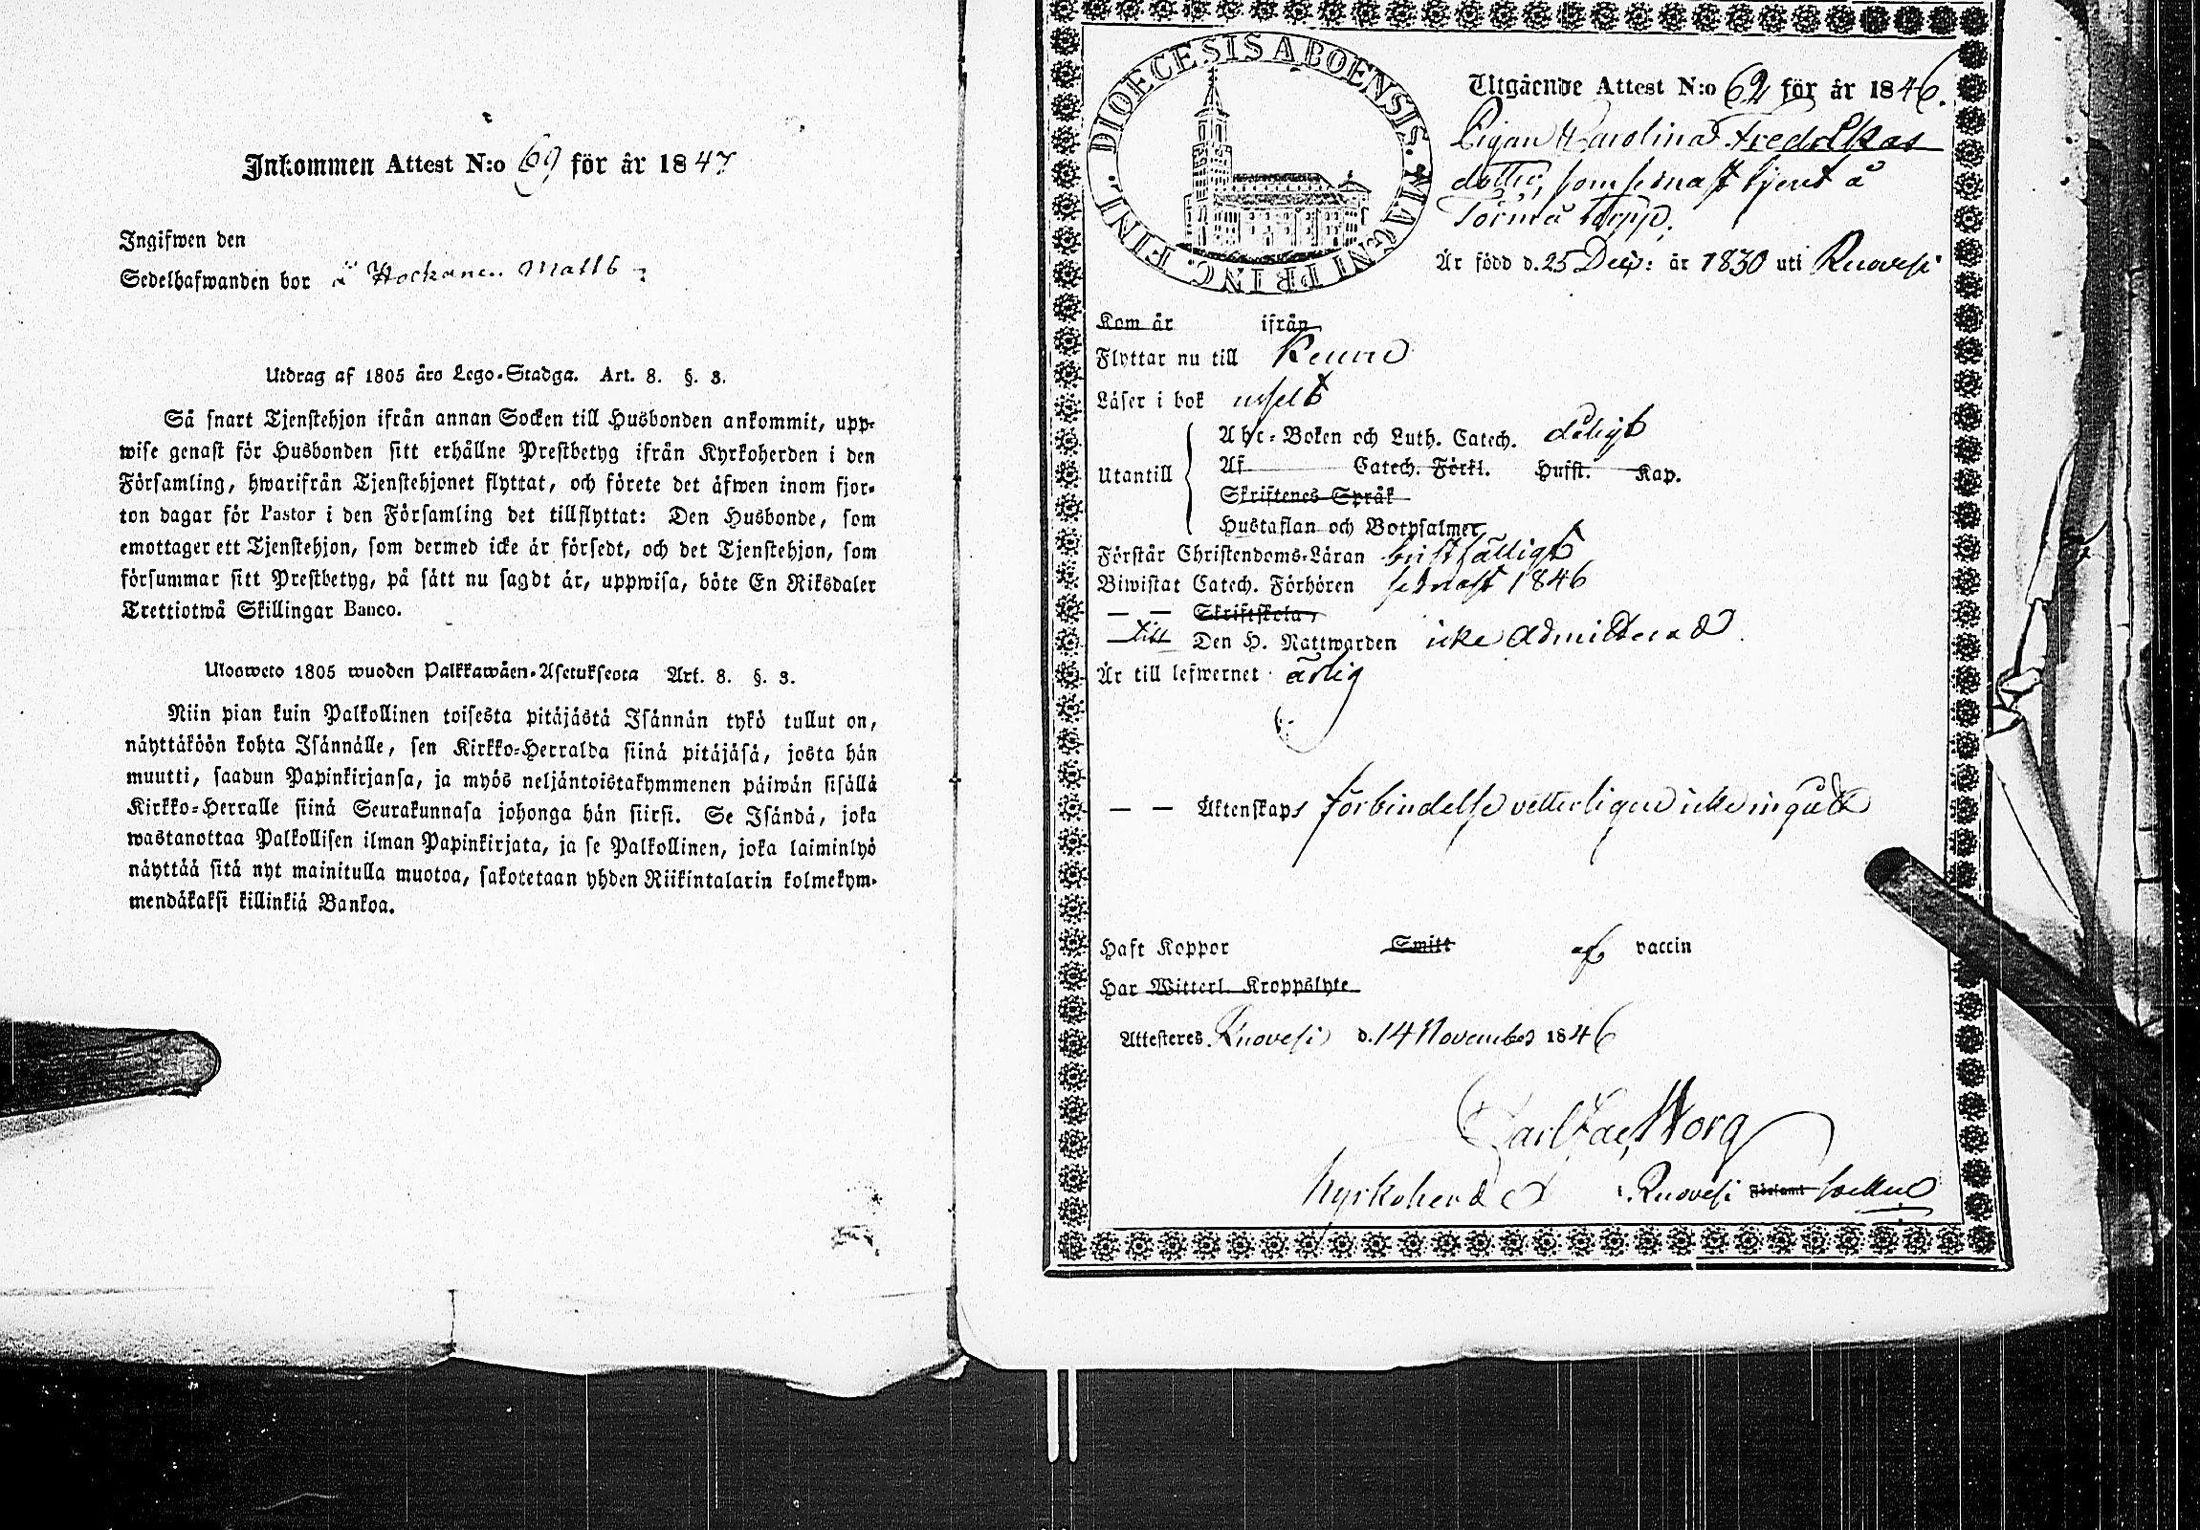 Inkommen Attest N:o 69 för år 1847
Ingifwen den
Sedelhafwanden bor å
Utdrag af 1805 års Lego-Stadga. Art. 8. §. 3.
Så snart Tjenstehjon ifrån annan Socken till Husbonden ankommit, upp-
wise genast för Husbonden sitt erhållne Prestbetyg ifrån Kyrkoherden i den
Församling, hwarifrån Tjenstehjonet flyttat, och förete det äfwen inom fjor-
ton dagar för Pastor i den Församling det tillflyttat: Den Husbonde, som
emottager ett Tjenstehjon, som dermed icke är försedt, och det Tjenstehjon, som
försummar sitt Prestbetyg, på sätt nu sagdt är, uppwisa, böte En Riksdaler
Trettiotwå Skillingar Banco.
Uloosweto 1805 wuoden Palkkawäen-Asetuksesta Art. 8. §. 3.
Niin pian kuin Palkollinen toisesta pitäjästä Isännän tykö tullut on,
näyttäköön kohta Isännälle, sen Kirkko-Herralda siinä pitäjäsä, josta hän
muutti, saadun Papinkirjansa, ja myös neljäntoistakymmenen päiwän sisällä
Kirkko-Herralle siinä Seurakunnasa johonga hän siirsi. Se Isändä, joka
wastanottaa Palkollisen ilman Papinkirjata, ja se Palkollinen, joka laiminlyö
näyttää sitä nyt mainitulla muotoa, sakotetaan yhden Riikintalarin kolmekym-
mendäkaksi killinkiä Bankoa.
DIOECESIS ABOENSIS. MAGNI PRINC. FINL.
Utgående Attest N:o 62 för år 1846.
Pigan Carolina Fredrikas
dotter, som sednast tjent å
Törmä torpp.
Är född d. 25 Dec: år 1830 uti Ruovesi
Kom år ifrån
Flyttar nu till Keuru
Läser i bok uselt
Utantill
Abc-Boken och Luth. Catech. dåligt
Af Catech. Förkl. Hufst. Kap.
Skriftenes Språk
Hustaflan och Botpsalmer
Förstår Christendoms-Läran bristfälligt
Biwistat Catech. Förhören sednast 1846
— — Skriftskola
till Den H. Nattwarden icke admitterad.
Är till lefwernet ärlig
— — Äktenskaps förbindelse vetterligen icke ingått
Haft Koppor Smitt af vaccin
Har Witterl. Kroppslyte
Attesteres Ruovesi d. 14 November 1846
Carl Jac. Worg
Kyrkoherde i Ruovesi Församl socken